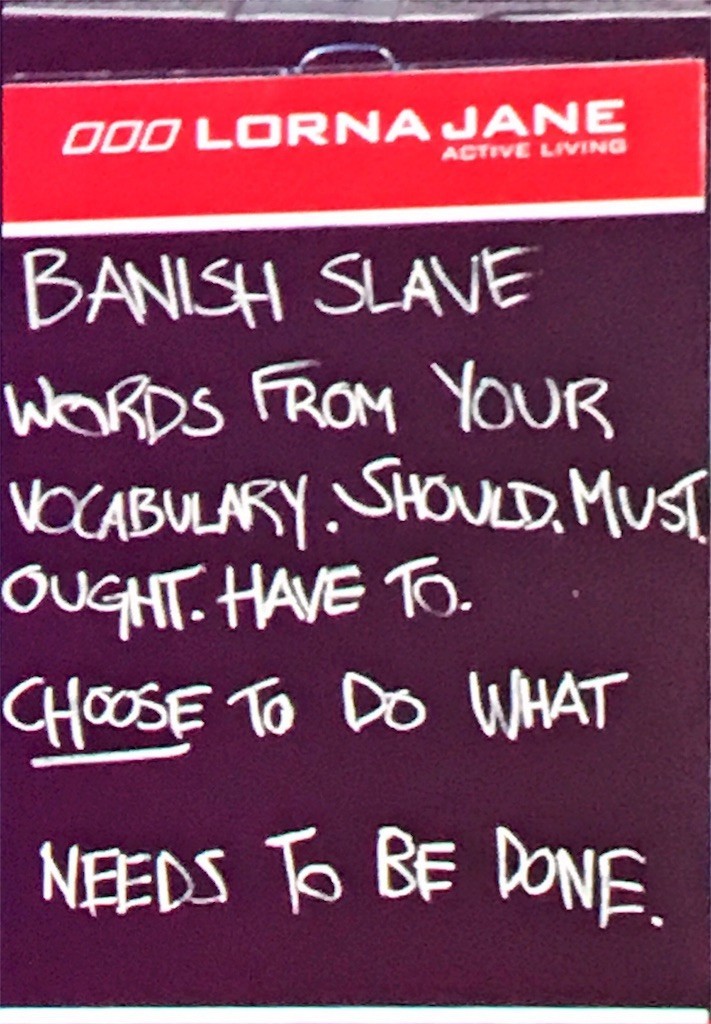 LORNA JANE
ACTIVE LIVING
BANISH SLAVE
WORDS FROM YOUR
VOCABULARY. SHOULD. MUST.
OUGHT. HAVE TO.
CHOOSE TO DO WHAT
NEEDS TO BE DONE.